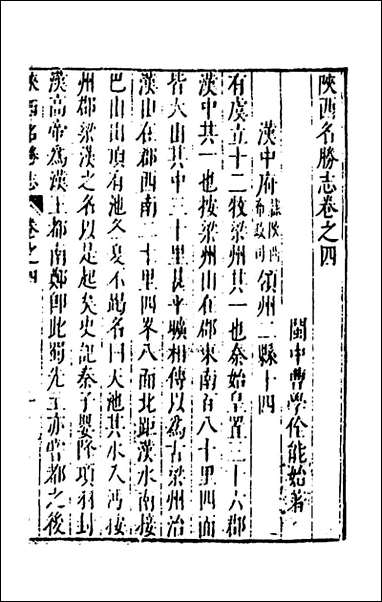 陝西名勝志卷之四
閩中曹學佺能始著
漢中府隷陝西布政司領州二縣十四
有虞立十二牧梁州其一也秦始皇置三十六郡
漢中共一也按梁州山在郡東南百八十里四面
皆大山其中三十里甚平曠相傳以爲古梁州治
漢山在郡西南二十里四峯八面北距漢水南接
巴山山頂有池冬夏不竭名曰大池其水入沔按
州郡梁漢之名以是起矣史記秦子嬰降項羽封
漢高帝爲漢王都南鄭卽此蜀先主亦嘗都之後
陝西名勝志 卷之四 一